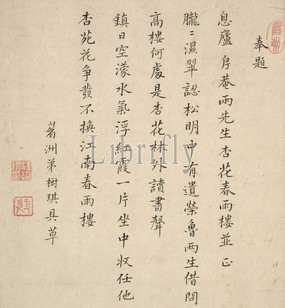 奉題
息廬房菴兩先生杏花春雨樓並正
朧〻濕翠認松明中有遺榮魯兩生借問
高樓何處是杏花林外讀書聲
鎮日空濛水氣浮紅霞一片坐中收任他
杏苑花爭發不換江南春雨樓
洲弟樹琪具草
Librifly